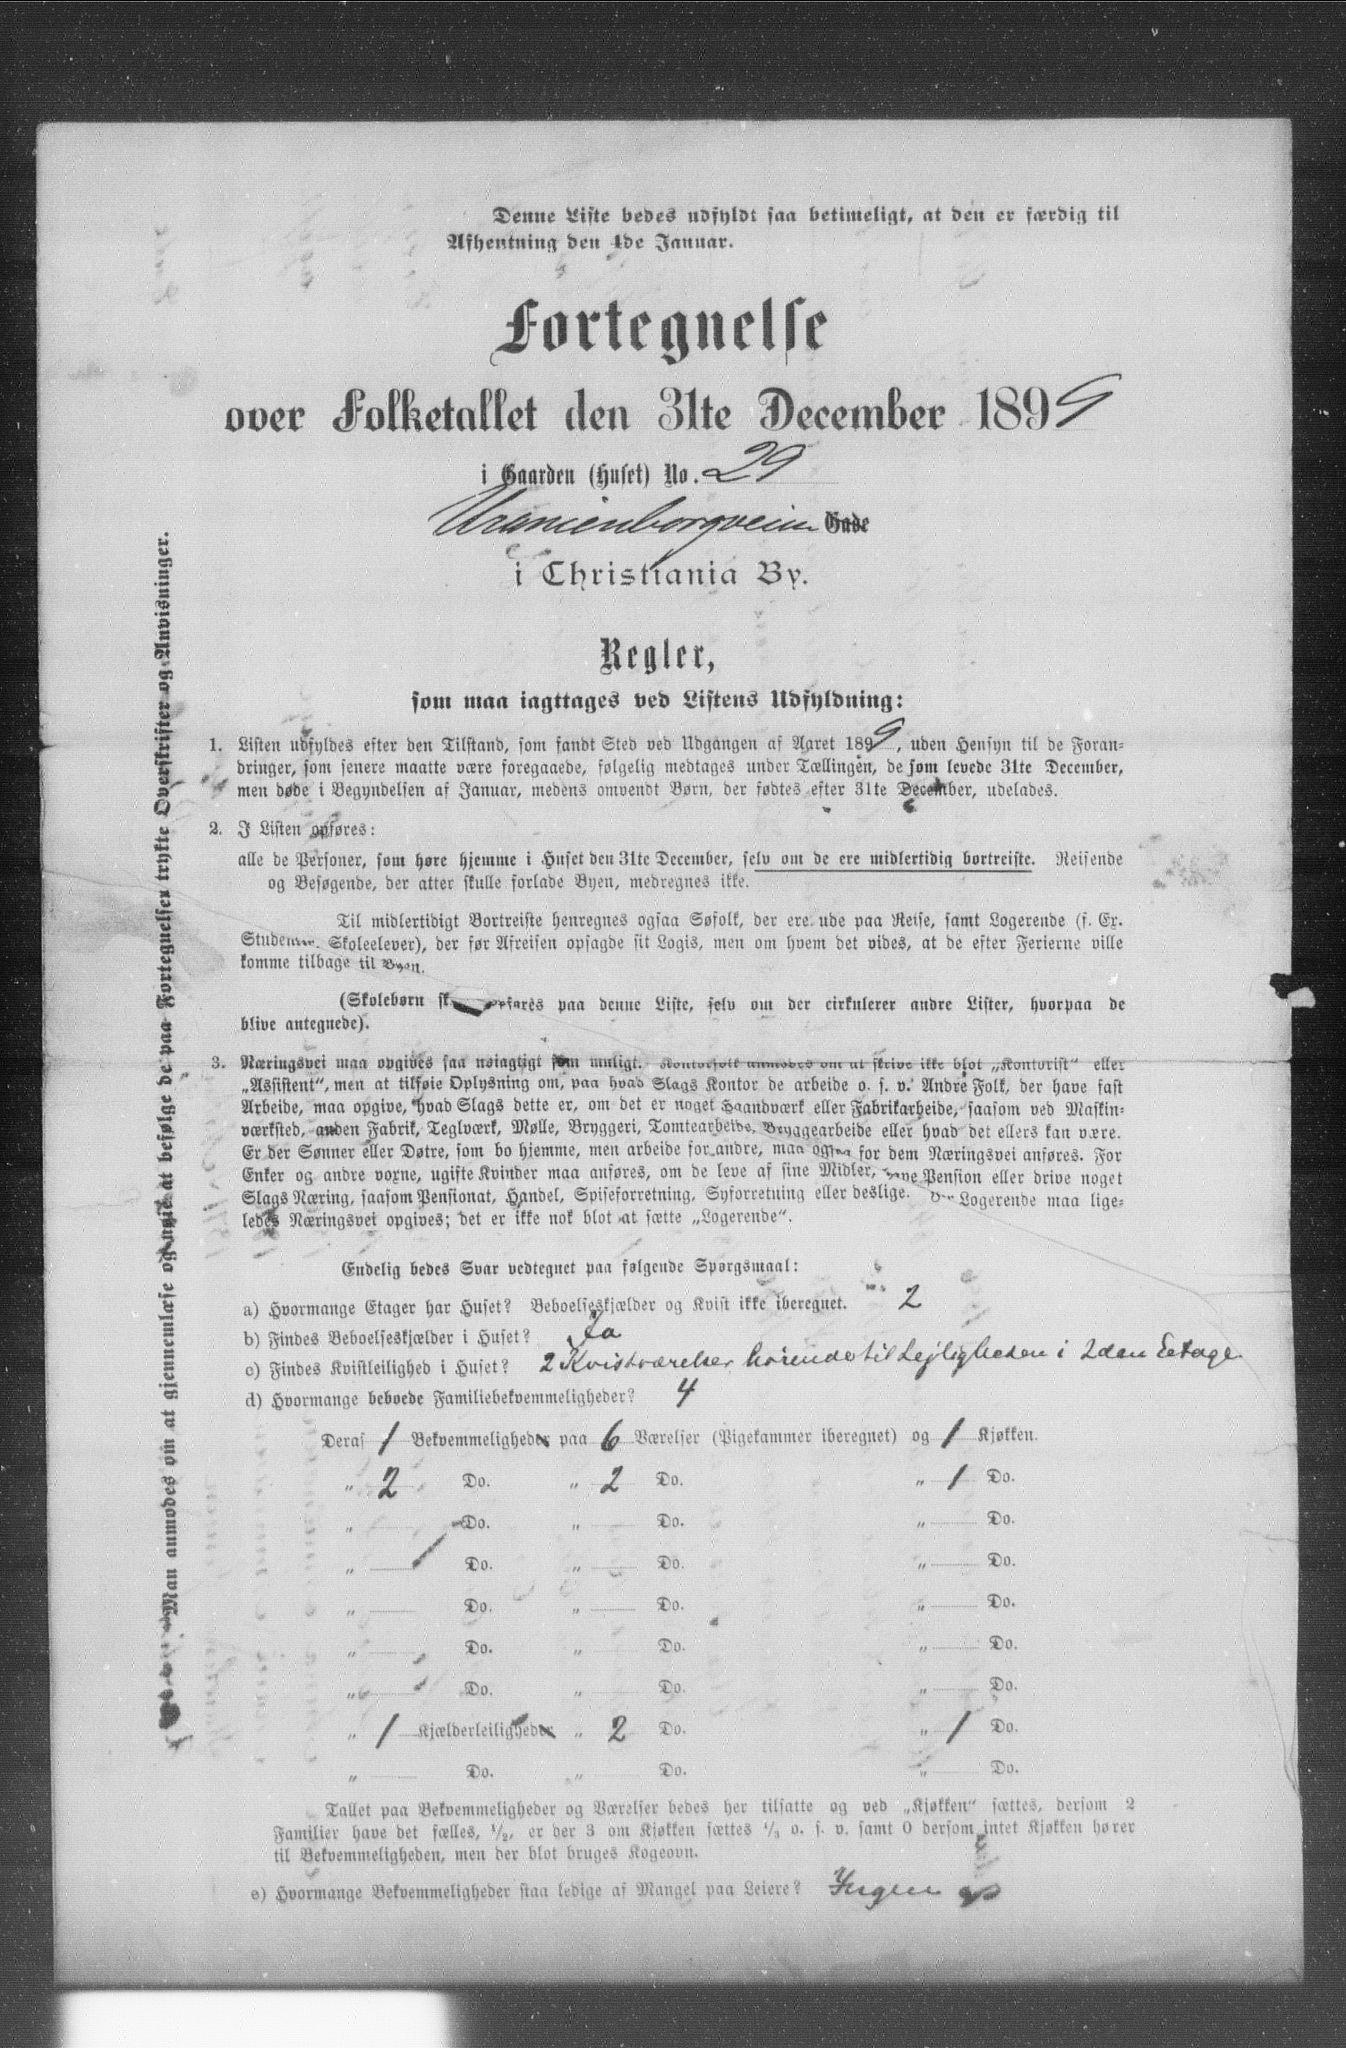 Denne Liste bedes udfyldt saa betimeligt, at den er færdig til
Afhentning den 4de Januar.
Fortegnelse
over Folketallet den 31te December 1899
i Gaarden (Huset) No. 29
Uranienborgveien Gade
i Christiania By.
Regler,
som maa iagttages ved Listens Udfyldning:
1. Listen udfyldes efter den Tilstand, som fandt Sted ved Udgangen af Aaret 1899, uden Hensyn til de Foran-
dringer, som senere maatte være foregaaede, følgelig medtages under Tællingen, de som levede 31te December,
men døde i Begyndelsen af Januar, medens omvendt Børn, der fødtes efter 31te December, udelades.
2. I Listen opføres:
alle de Personer, som høre hjemme i Huset den 31te December, selv om de ere midlertidig bortreiste. Reisende
og Besøgende, der atter skulle forlade Byen, medregnes ikke.
Til midlertidigt Bortreiste henregnes ogsaa Søfolk, der ere ude paa Reise, samt Logerende (f. Ex.
Skoleelever), der før Afreisen opsagde sit Logis, men om hvem det vides, at de efter Ferierne ville
komme tilbage til Byen.
(Skolebørn opføres paa denne Liste, selv om der cirkulerer andre Lister, hvorpaa de
blive antegnede).
3. Næringsvei maa opgives saa nøiagtigt som muligt. Kontorfolk anmodes om at skrive ikke blot „Kontorist" eller
„Assistent", men at tilføie Oplysning om, paa hvad Slags Kontor de arbeide o. s. v. Andre Folk, der have fast
Arbeide, maa opgive, hvad Slags dette er, om det er noget Haandværk eller Fabrikarbeide, saasom ved Maskin-
værksted, anden Fabrik, Teglværk, Mølle, Bryggeri, Tomtearbeide, Bryggearbeide eller hvad det ellers kan være.
Er der Sønner eller Døtre, som bo hjemme, men arbeide for andre, maa ogsaa for dem Næringsvei anføres. For
Enker og andre voxne, ugifte Kvinder maa anføres, om de leve af sine Midler, nyde Pension eller drive noget
Slags Næring, saasom Pensionat, Handel, Spiseforretning, Syforretning eller deslige. For Logerende maa lige-
ledes Næringsvei opgives; det er ikke nok blot at sætte „Logerende".
Endelig bedes Svar vedtegnet paa følgende Spørgsmaal:
a) Hvormange Etager har Huset? Beboelseskjælder og Kvist ikke iberegnet. 2
b) Findes Beboelseskjælder i Huset? Ja
c) Findes Kvistleilighed i Huset? 2 Kvistværelser hørende til Lejligheden i 2den Eetage.
d) Hvormange beboede Familiebekvemmeligheder? 4
Deraf 1 Bekvemmeligheder paa 6 Værelser (Pigekammer iberegnet) og 1 Kjøkken.
„ 2 Do. „ 2 Do. „ 1 Do.
„ Do. „ Do. „ Do.
„ Do. „ Do. „ Do.
„ Do. „ Do. „ Do.
„ Do. „ Do. „ Do.
„ Do. „ Do. „ Do.
„ 1 Kjælderleiligheder „ 2 Do. „ 1 Do.
„ Do. „ Do. „ Do.
Tallet paa Bekvemmeligheder og Værelser bedes her tilsatte og ved „Kjøkken" sættes, dersom 2
Familier have det fælles, 1/2, er der 3 om Kjøkken sættes 1/3 o. s. v. samt 0 dersom intet Kjøkken hører
til Bekvemmeligheden, men der blot bruges Kogeovn.
e) Hvormange Bekvemmeligheder staa ledige af Mangel paa Leiere? Ingen
Man anmodes om at gjennemlæse og nøie at befølge de paa Fortegnelsen trykte Overskrifter og Anvisninger.